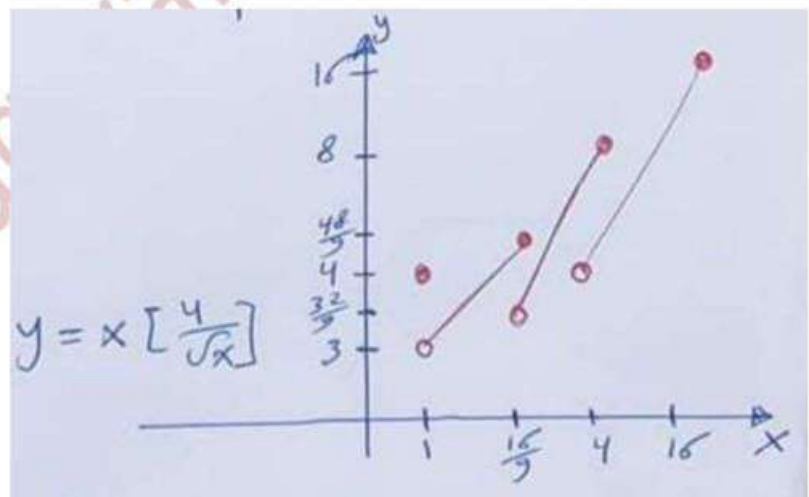 y
16
8
48/9
4
32/9
3
y = x [4/√x]
1
16/9
4
16
x